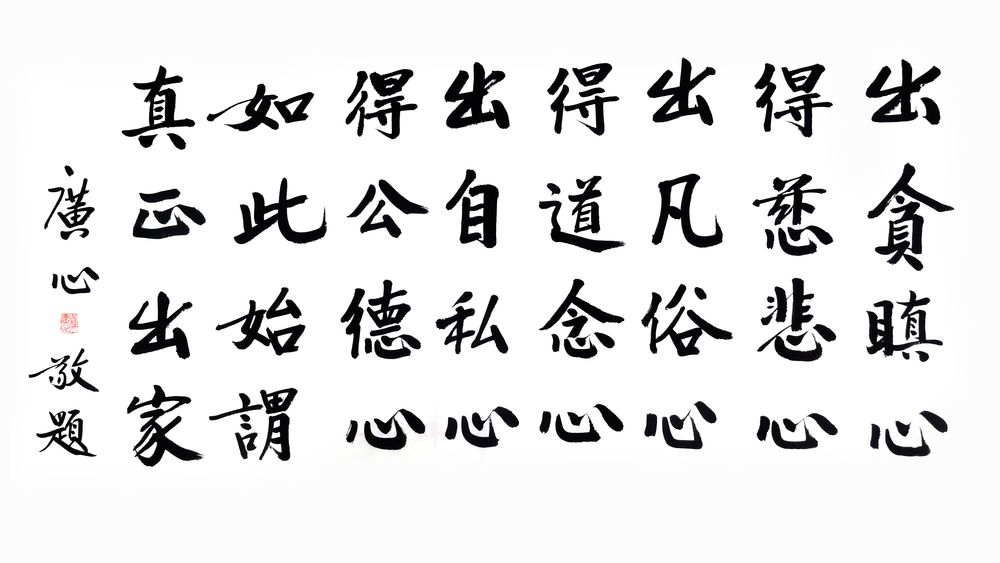 出貪瞋心
得慈悲心
出凡俗心
得道念心
出自私心
得公德心
如此始謂
真正出家
廣心敬題